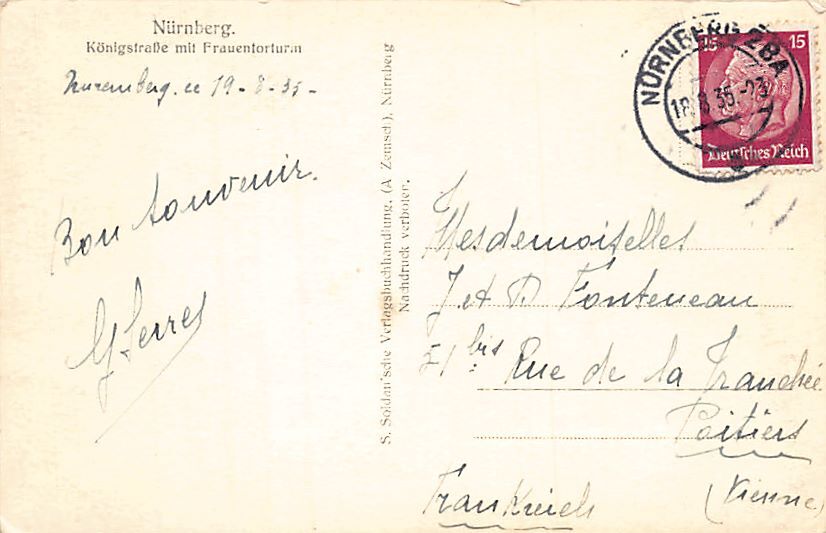 Nürnberg.
Königstraße mit Frauentorturm
Nuremberg. le 19-8-35-
Bon souvenir.
G Serres
S. Soldan'sche Verlagsbuchhandlung, (A. Zemsch), Nürnberg
Nachdruck verboten.
NÜRNBERG 2 BA
18.8.35.-23
15 15
Deutsches Reich
Mesdemoiselles
J et D Fonteneau
51 bis Rue de la Tranchée
Poitiers
(Vienne)
Frankreich